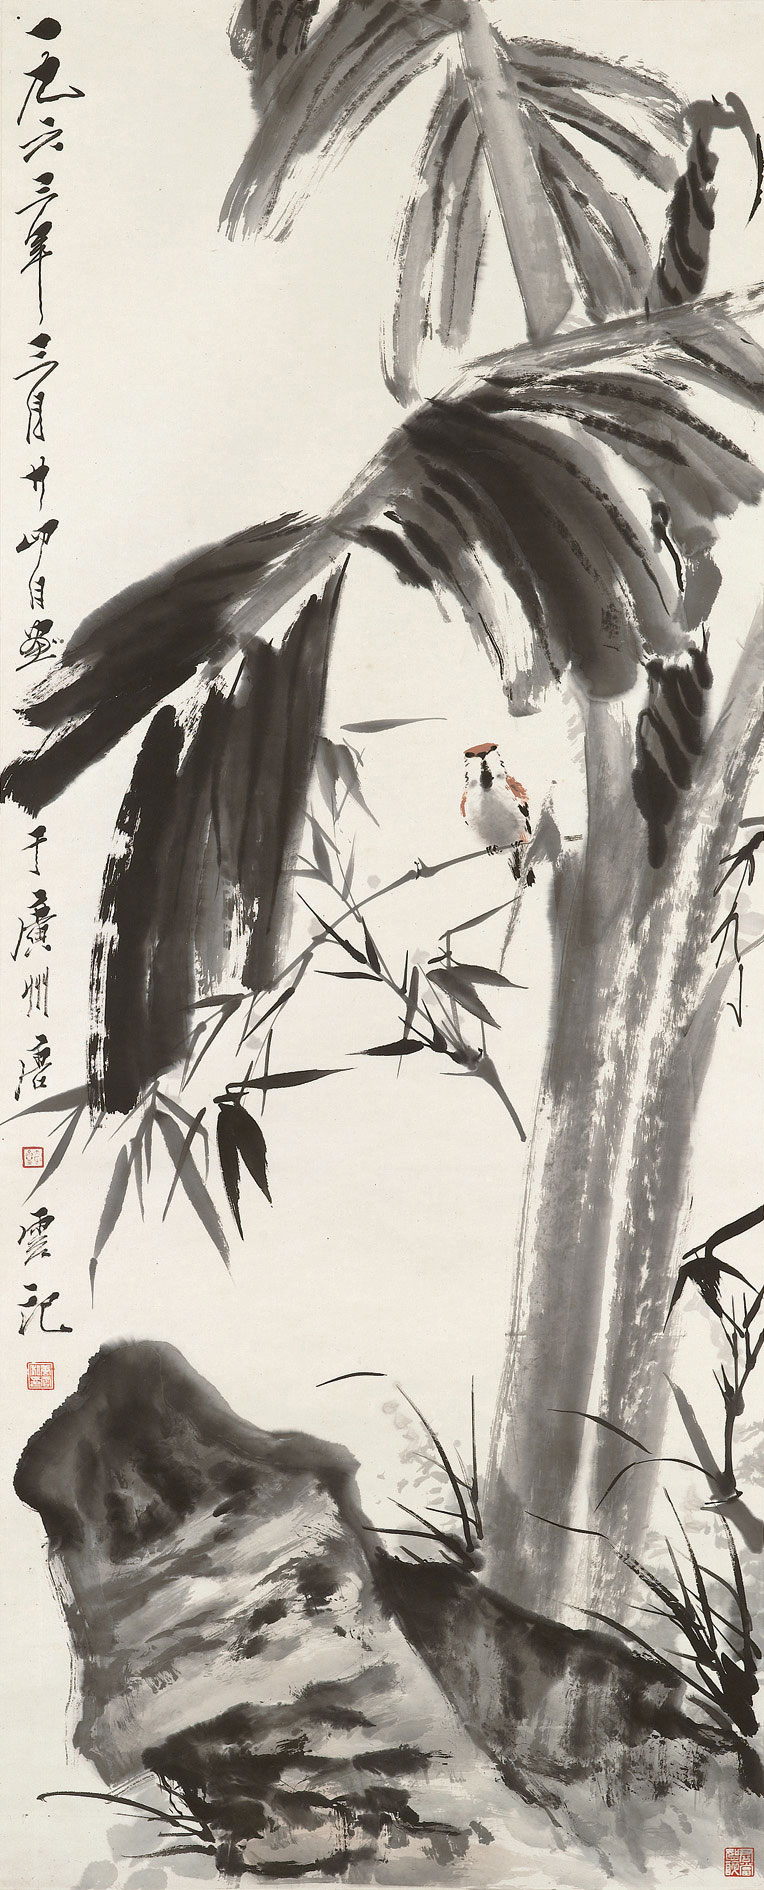 一九六三年三月廿四日画于廣州唐雲記